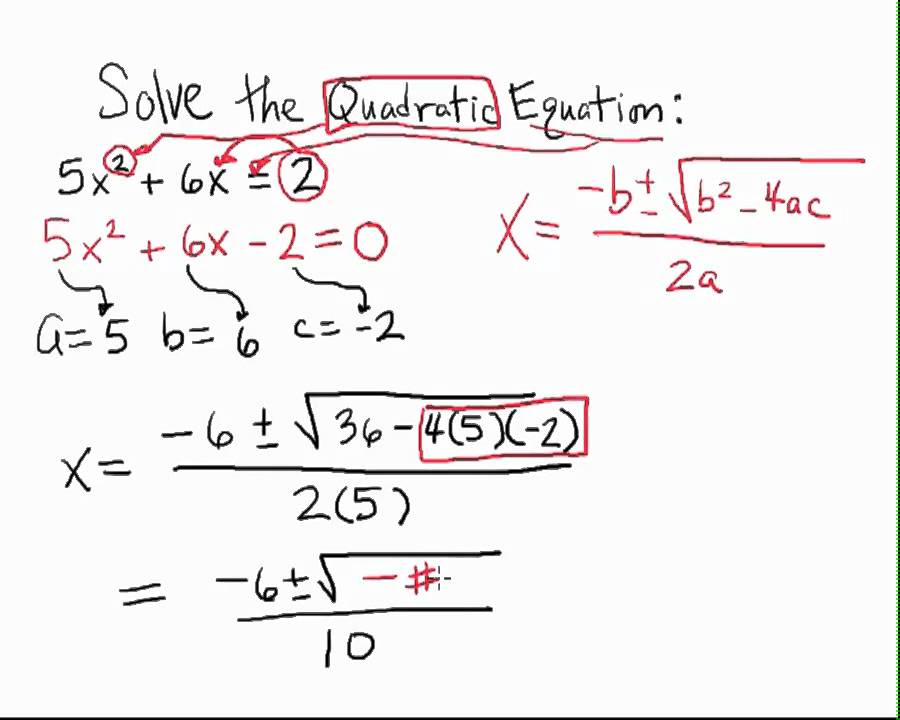 Solve the Quadratic Equation:
5x² + 6x = 2
5x² + 6x - 2 = 0
a = 5 b = 6 c = -2
x = (-b ± √(b² - 4ac)) / 2a
x = (-6 ± √(36 - 4(5)(-2))) / 2(5)
= (-6 ± √(- #)) / 10